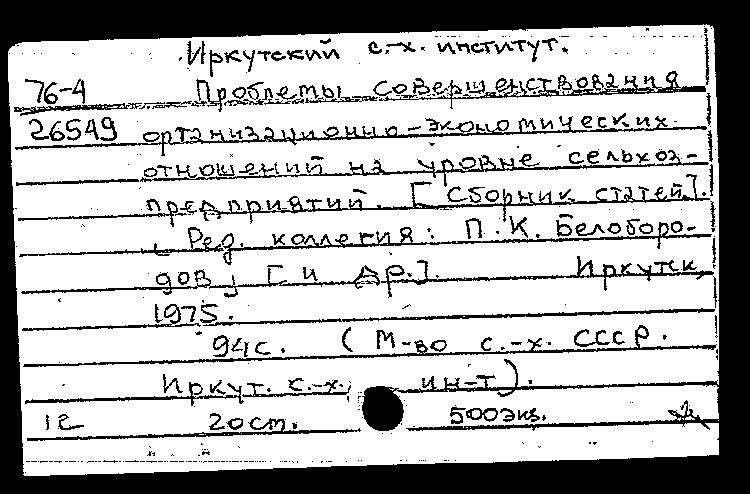 Иркутский с.-х. институт.
76-4 Проблемы совершенствования
26549 организационно-экономических
отношений на уровне сельхоз-
предприятий. [Сборник статей].
Ред. коллегия: П.К. Белоборо-
дов [и др.]. Иркутск,
1975.
94с. (М-во с.-х. СССР.
Иркут. с.-х. ин-т).
20см. 500экз.